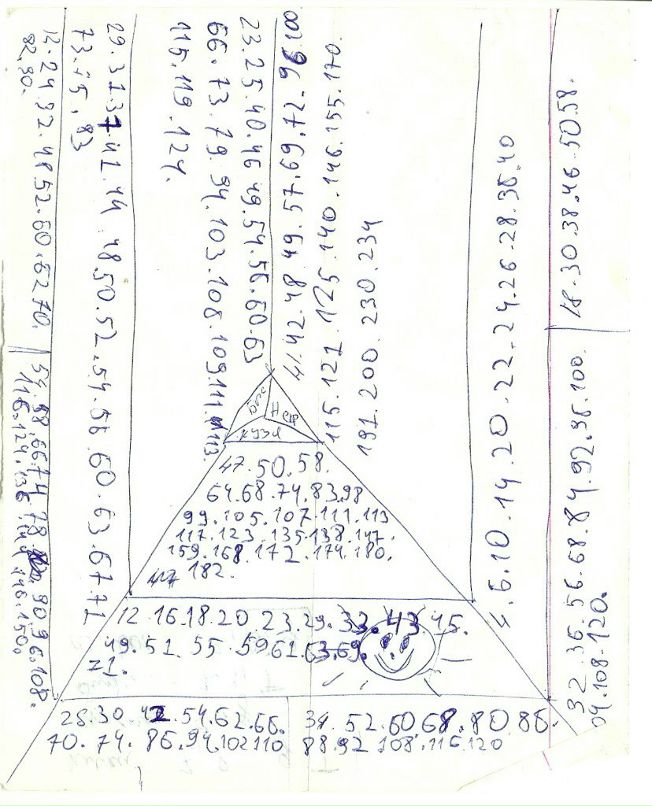 23.25.40.46.49.54.56.60.63
66.73.79.94.103.108.109.111.113.
115.119.124.
29.31.37.41.44.48.50.52.54.56.60.63.67 71
73.75.83
12.24 32.48.52.60.62 70.
82.90.
54.58.66 74.78 90.96.108.
116.124.136.144.146.150.
115.121.125.140.146.155.170.
191.200.230.234
4.6.10.14.20.22.24.26.28.36.40
18.30.38.46.50.58.
32.36.56.68.84.92.96.100.
04.108.120.
Нер
Кузя
47.50.58.
64.68.74.83.98
99.105.107.111.113
117.123.135.138.147.
159.168.172.174.180.
182.
12.16.18.20.23.29.33.43.45.
49.51.55.59 61.63.69.
71.
28.30 42.54.62.66.
70.74.86.94.102 110
34.52.60.68.80 86.
88.92.108.116.120